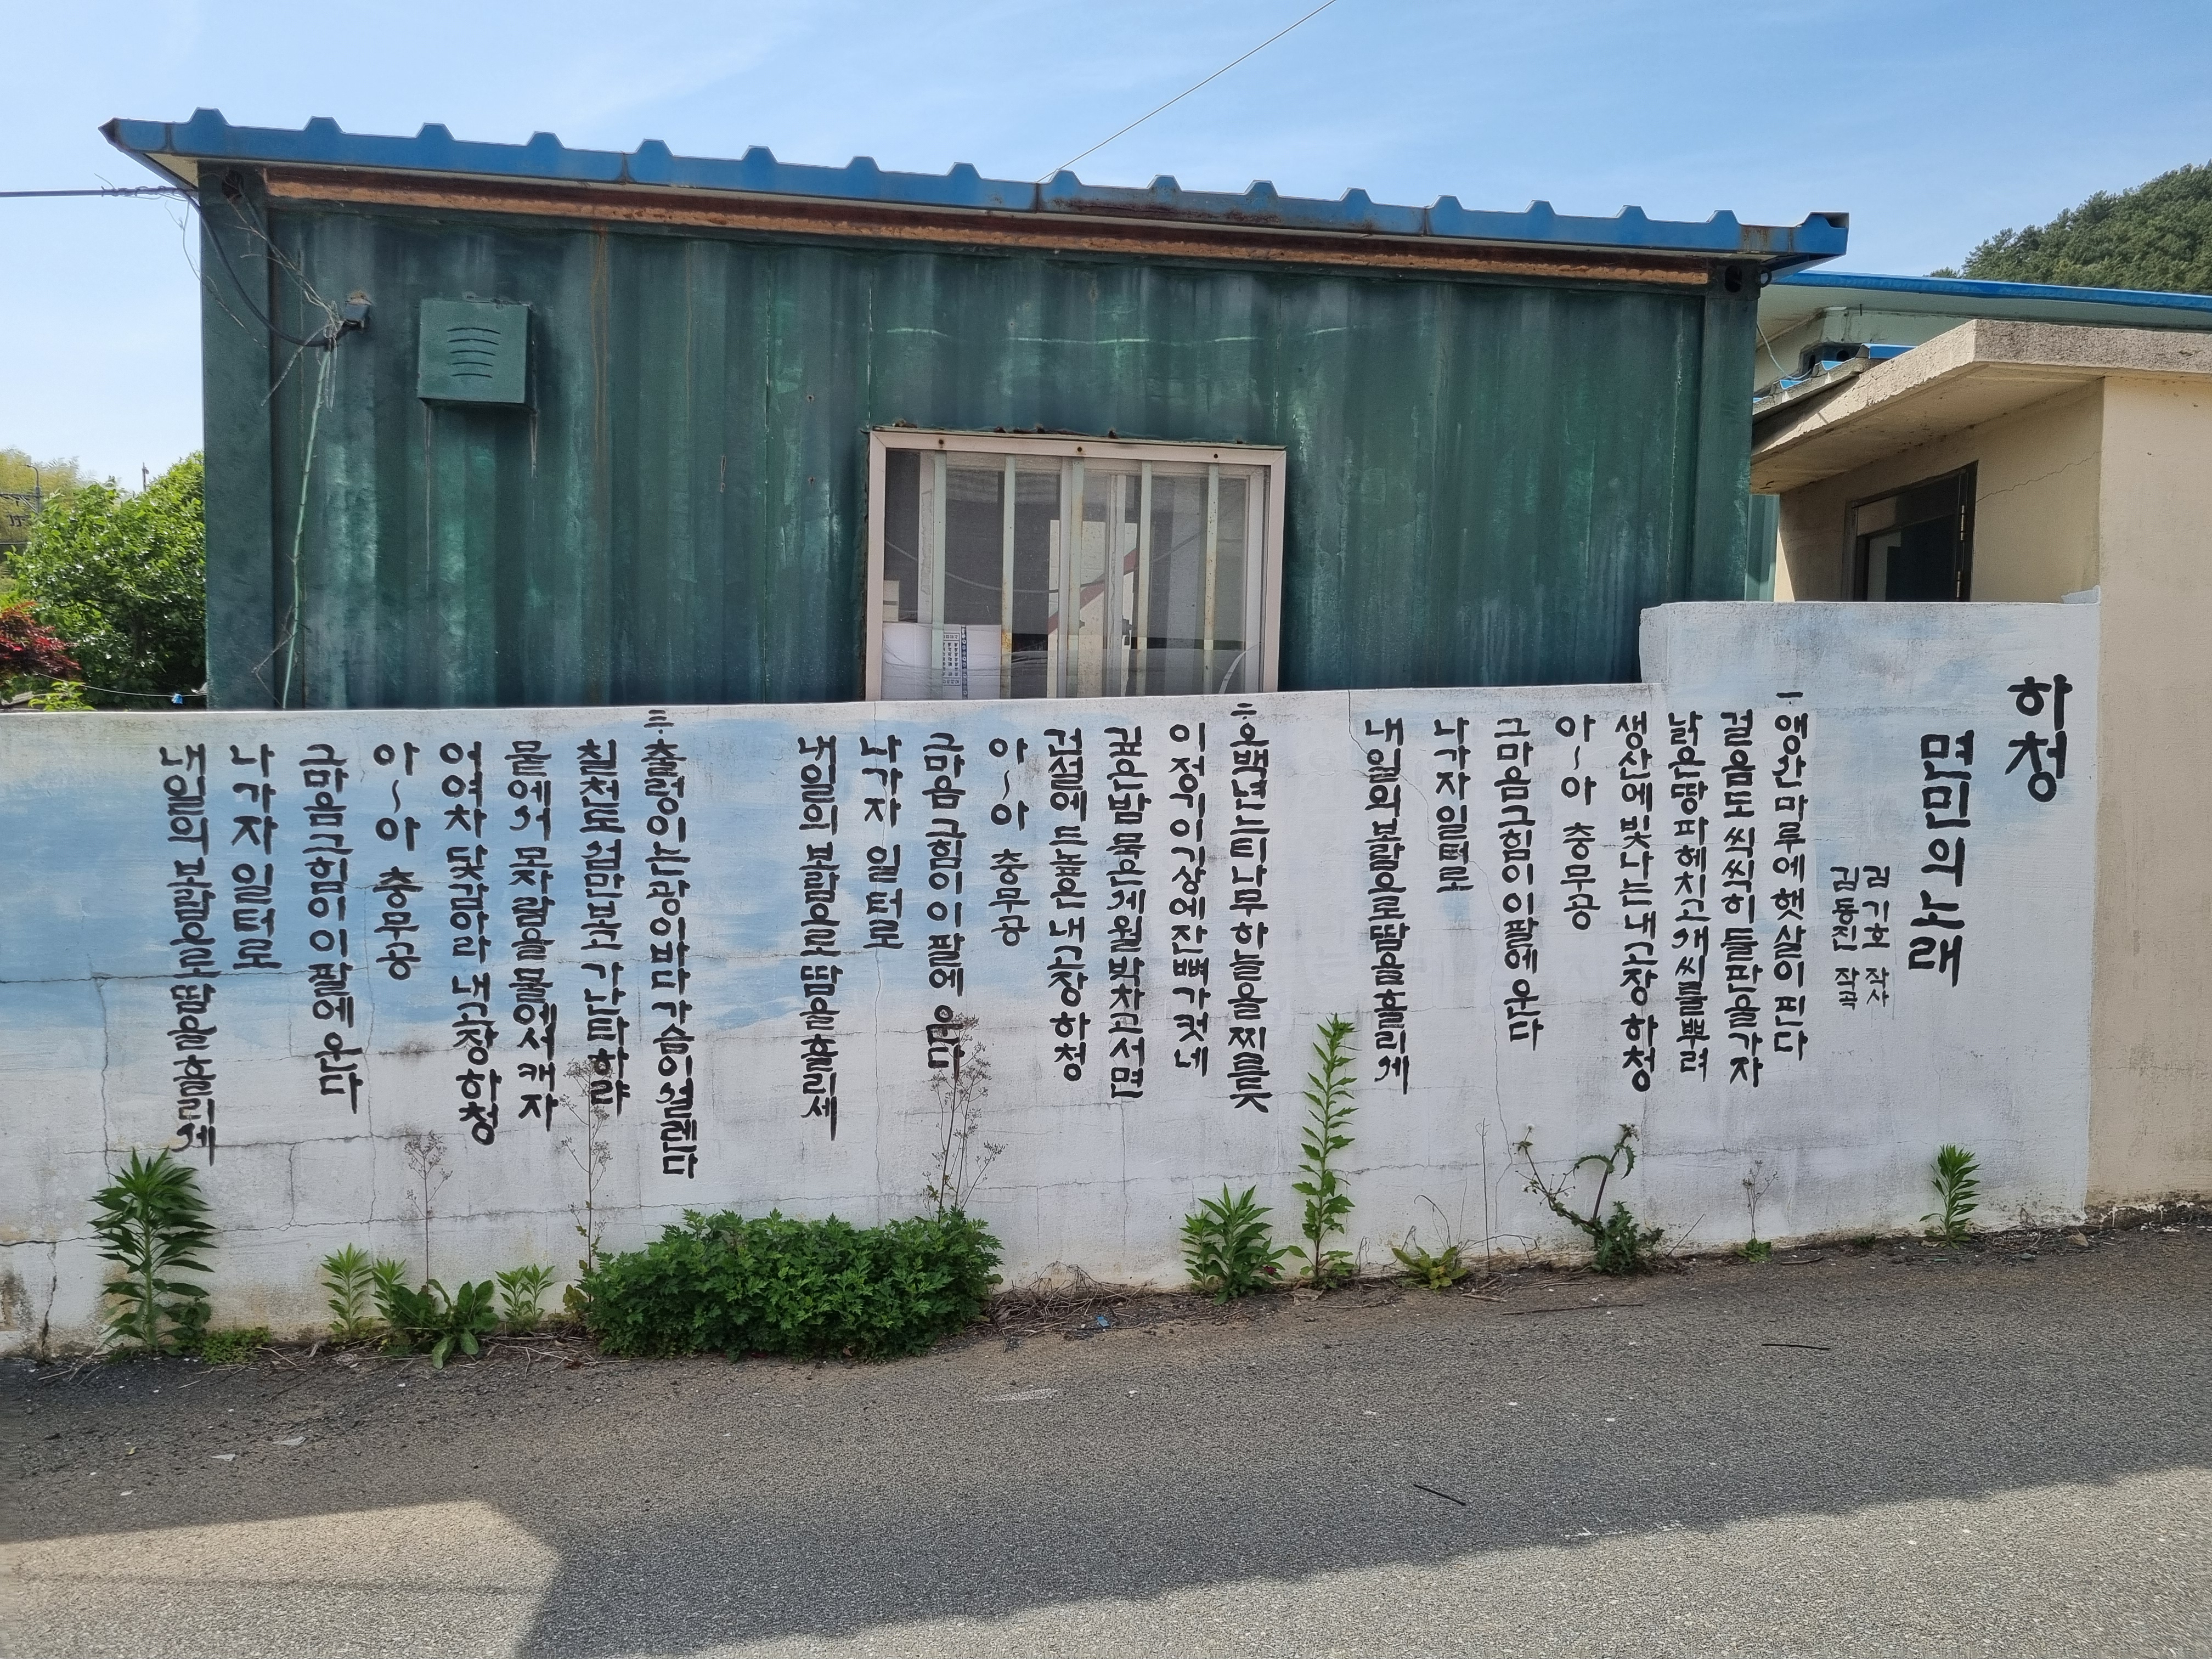 하청
면민의 노래
김기호 작사
김동진 작곡
一. 앵산마루에 햇살이 핀다
걸음도 씩씩히 들판을 가자
낡은땅 파헤치고 새씨를 뿌려
생산에 빛나는 내고장 하청
아~아 충무공
그마음 그힘이 이팔에 운다
나가자 일터로
내일의 보람으로 땀을 흘리세
二. 오백년 느티나무 하늘을 찌를듯
이정기 이강산에 잔뼈가 컷네
깊은밤 묵은세월 박차고 서면
건설에 드높은 내고장 하청
아~아 충무공
그마음 그힘이 이팔에 운다
나가자 일터로
내일의 보람으로 땀을 흘리세
三. 출렁이는 광이바다 가슴이 설렌다
칠천도 섬만보고 가난타하랴
뭍에서 모자람을 물에서 캐자
어여차 닻감아라 내고장 하청
아~아 충무공
그마음 그힘이 이팔에 운다
나가자 일터로
내일의 보람으로 땀을 흘리세